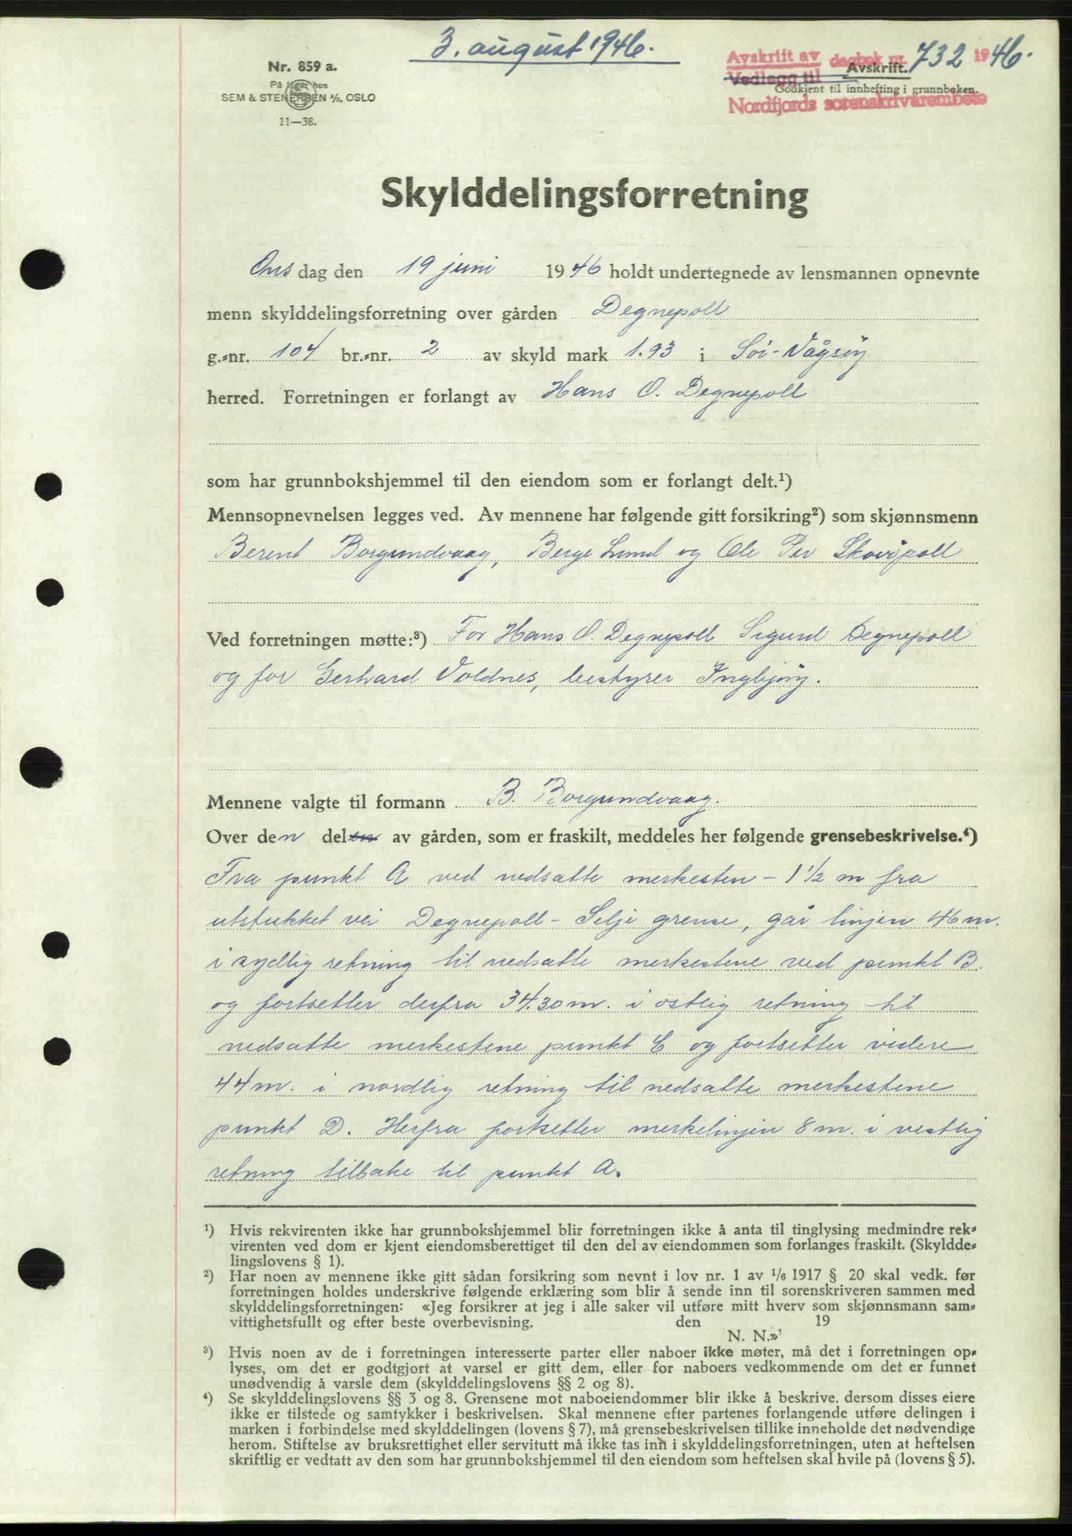 3. august 1946.
Nr. 859 a.
På lager hos
SEM & STENERSEN A/S, OSLO
11—38.
Avskrift av dagbok nr. 732 1946.
Vedlegg til
Avskrift.
Godkjent til innhefting i grunnboken.
Nordfjords sorenskrivarembete
Skylddelingsforretning
Ons dag den 19 juni 1946 holdt undertegnede av lensmannen opnevnte
menn skylddelingsforretning over gården Degnepoll
g.-nr. 104 br.-nr. 2 av skyld mark 1.93 i Sør-Vågsøy
herred. Forretningen er forlangt av Hans O. Degnepoll
som har grunnbokshjemmel til den eiendom som er forlangt delt.¹)
Mennsopnevnelsen legges ved. Av mennene har følgende gitt forsikring²) som skjønnsmenn
Berent Borgundvaag, Berge Lund og Ole Per Skorpoll
Ved forretningen møtte:³) For Hans O. Degnepoll Sigurd Degnepoll
og for Gerhard Voldnes, bestyrer Ingbjørg.
Mennene valgte til formann B. Borgundvaag.
Over den delen av gården, som er fraskilt, meddeles her følgende grensebeskrivelse.⁴)
Fra punkt A ved nedsatte merkesten - 1½ m fra
utstukket vei Degnepoll - Selje grense, går linjen 46 m.
i sydlig retning til nedsatte merkestene ved punkt B.
og fortsetter derfra 34.30 m. i østlig retning til
nedsatte merkestene punkt C og fortsetter videre
44 m. i nordlig retning til nedsatte merkestene
punkt D. Herfra fortsetter merkelinjen 8 m. i vestlig
retning tilbake til punkt A.
¹) Hvis rekvirenten ikke har grunnbokshjemmel blir forretningen ikke å anta til tinglysing medmindre rek-
virenten ved dom er kjent eiendomsberettiget til den del av eiendommen som forlanges fraskilt. (Skyldde-
lingslovens § 1).
²) Har noen av mennene ikke gitt sådan forsikring som nevnt i lov nr. 1 av 1/6 1917 § 20 skal vedk. før
forretningen holdes underskrive følgende erklæring som blir å sende inn til sorenskriveren sammen med
skylddelingsforretningen: «Jeg forsikrer at jeg i alle saker vil utføre mitt hverv som skjønnsmann sam-
vittighetsfullt og efter beste overbevisning. den 19
N. N.»
³) Hvis noen av de i forretningen interesserte parter eller naboer ikke møter, må det i forretningen op-
lyses, om det er godtgjort at varsel er gitt dem, eller for naboers vedkommende om det er funnet
unødvendig å varsle dem (skylddelingslovens §§ 2 og 8).
⁴) Se skylddelingslovens §§ 3 og 8. Grensene mot naboeiendommer blir ikke å beskrive, dersom disses eiere
ikke er tilstede og samtykker i beskrivelsen. Skal mennene efter partenes forlangende utføre delingen i
marken i forbindelse med skylddelingen (lovens § 7), må grensebeskrivelsen tillike inneholde det nødvendige
herom. Stiftelse av bruksrettighet eller servitutt må ikke tas inn i skylddelingsforretningen, uten at heftelsen
skriftlig er vedtatt av den som har grunnbokshjemmel til den eiendom som heftelsen skal hvile på (lovens § 5).